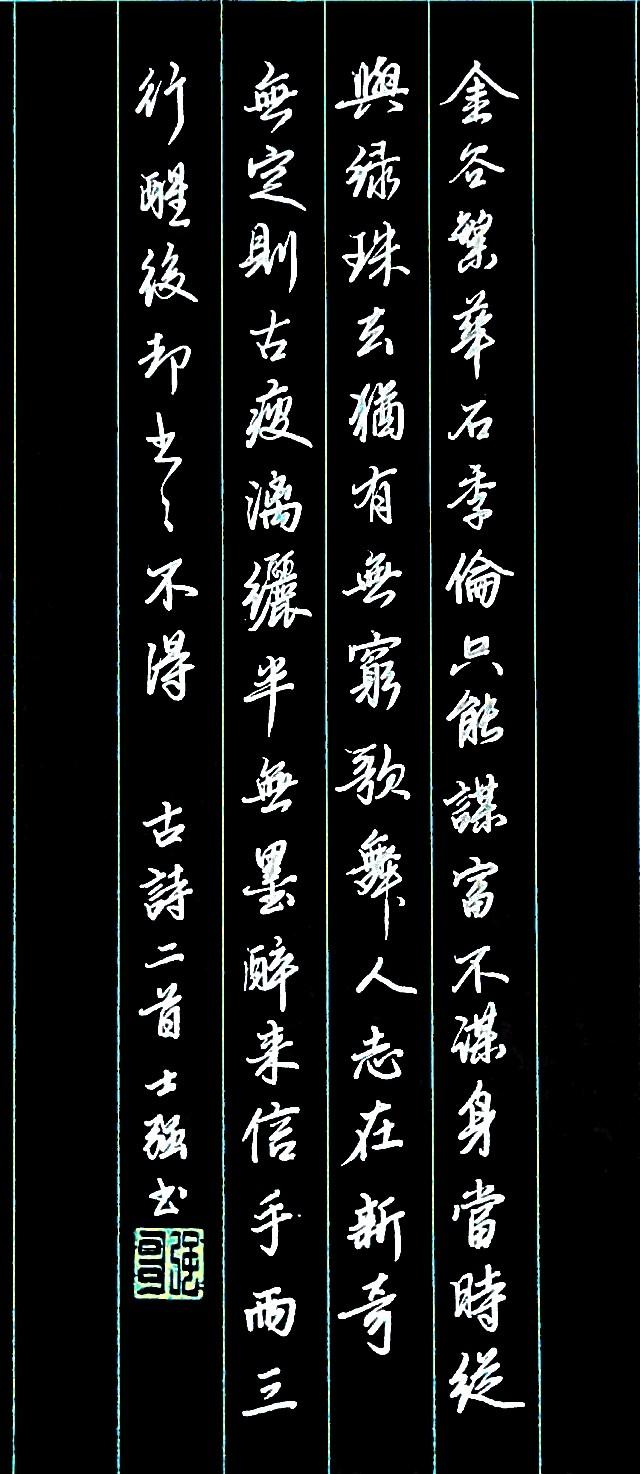 金谷繁華石季倫只能謀富不謀身當時縱
與緑珠去猶有無窮歌舞人志在新奇
無定則古瘦漓纚半無墨醉来信手兩三
行醒後却书〻不得 古詩二首 士强书
强哥